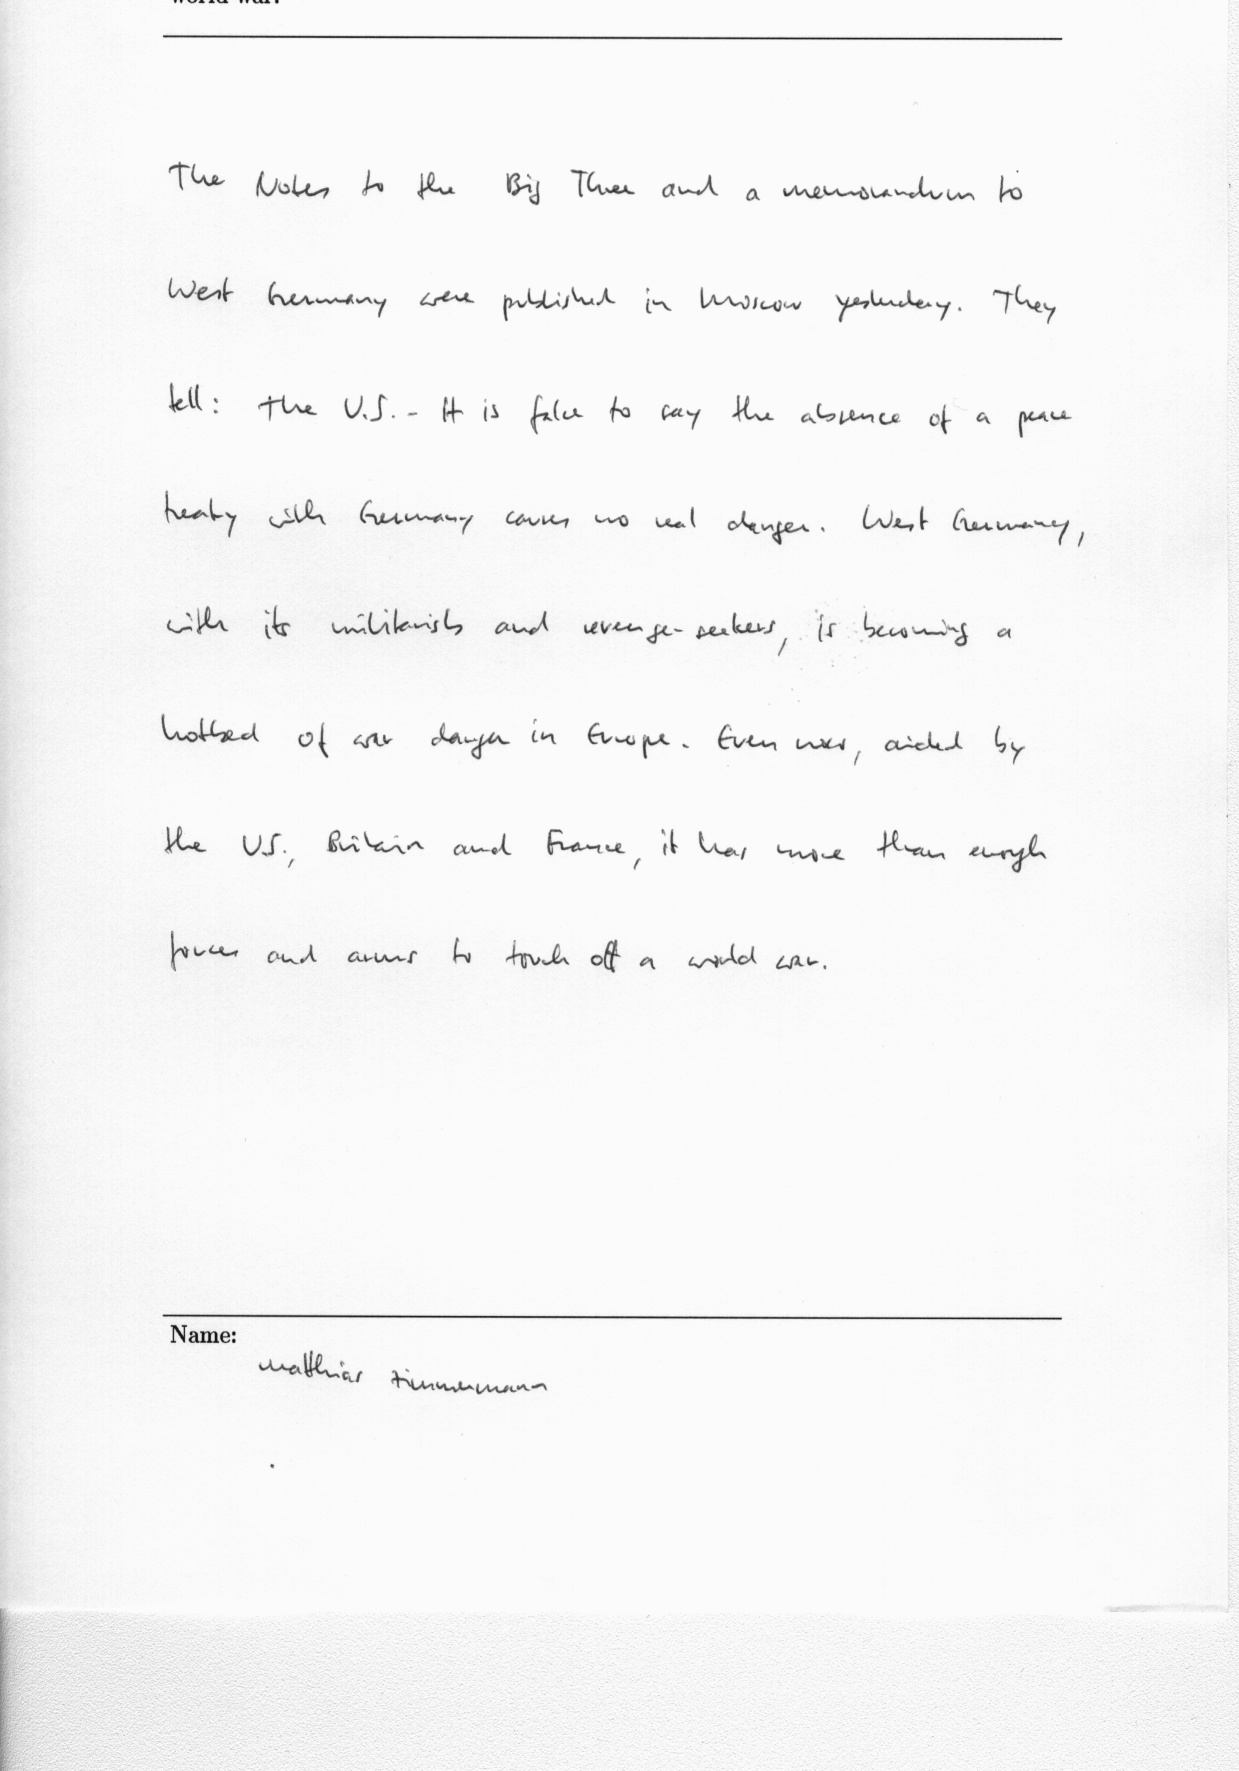 world war.
The Notes to the Big Three and a memorandum to
West Germany were published in Moscow yesterday. They
tell: The U.S. - It is false to say the absence of a peace
treaty with Germany causes no real danger. West Germany,
with its militarists and revenge-seekers, is becoming a
hotbed of war danger in Europe. Even now, aided by
the U.S., Britain and France, it has more than enough
forces and arms to touch off a world war.
Name:
Matthias Zimmermann